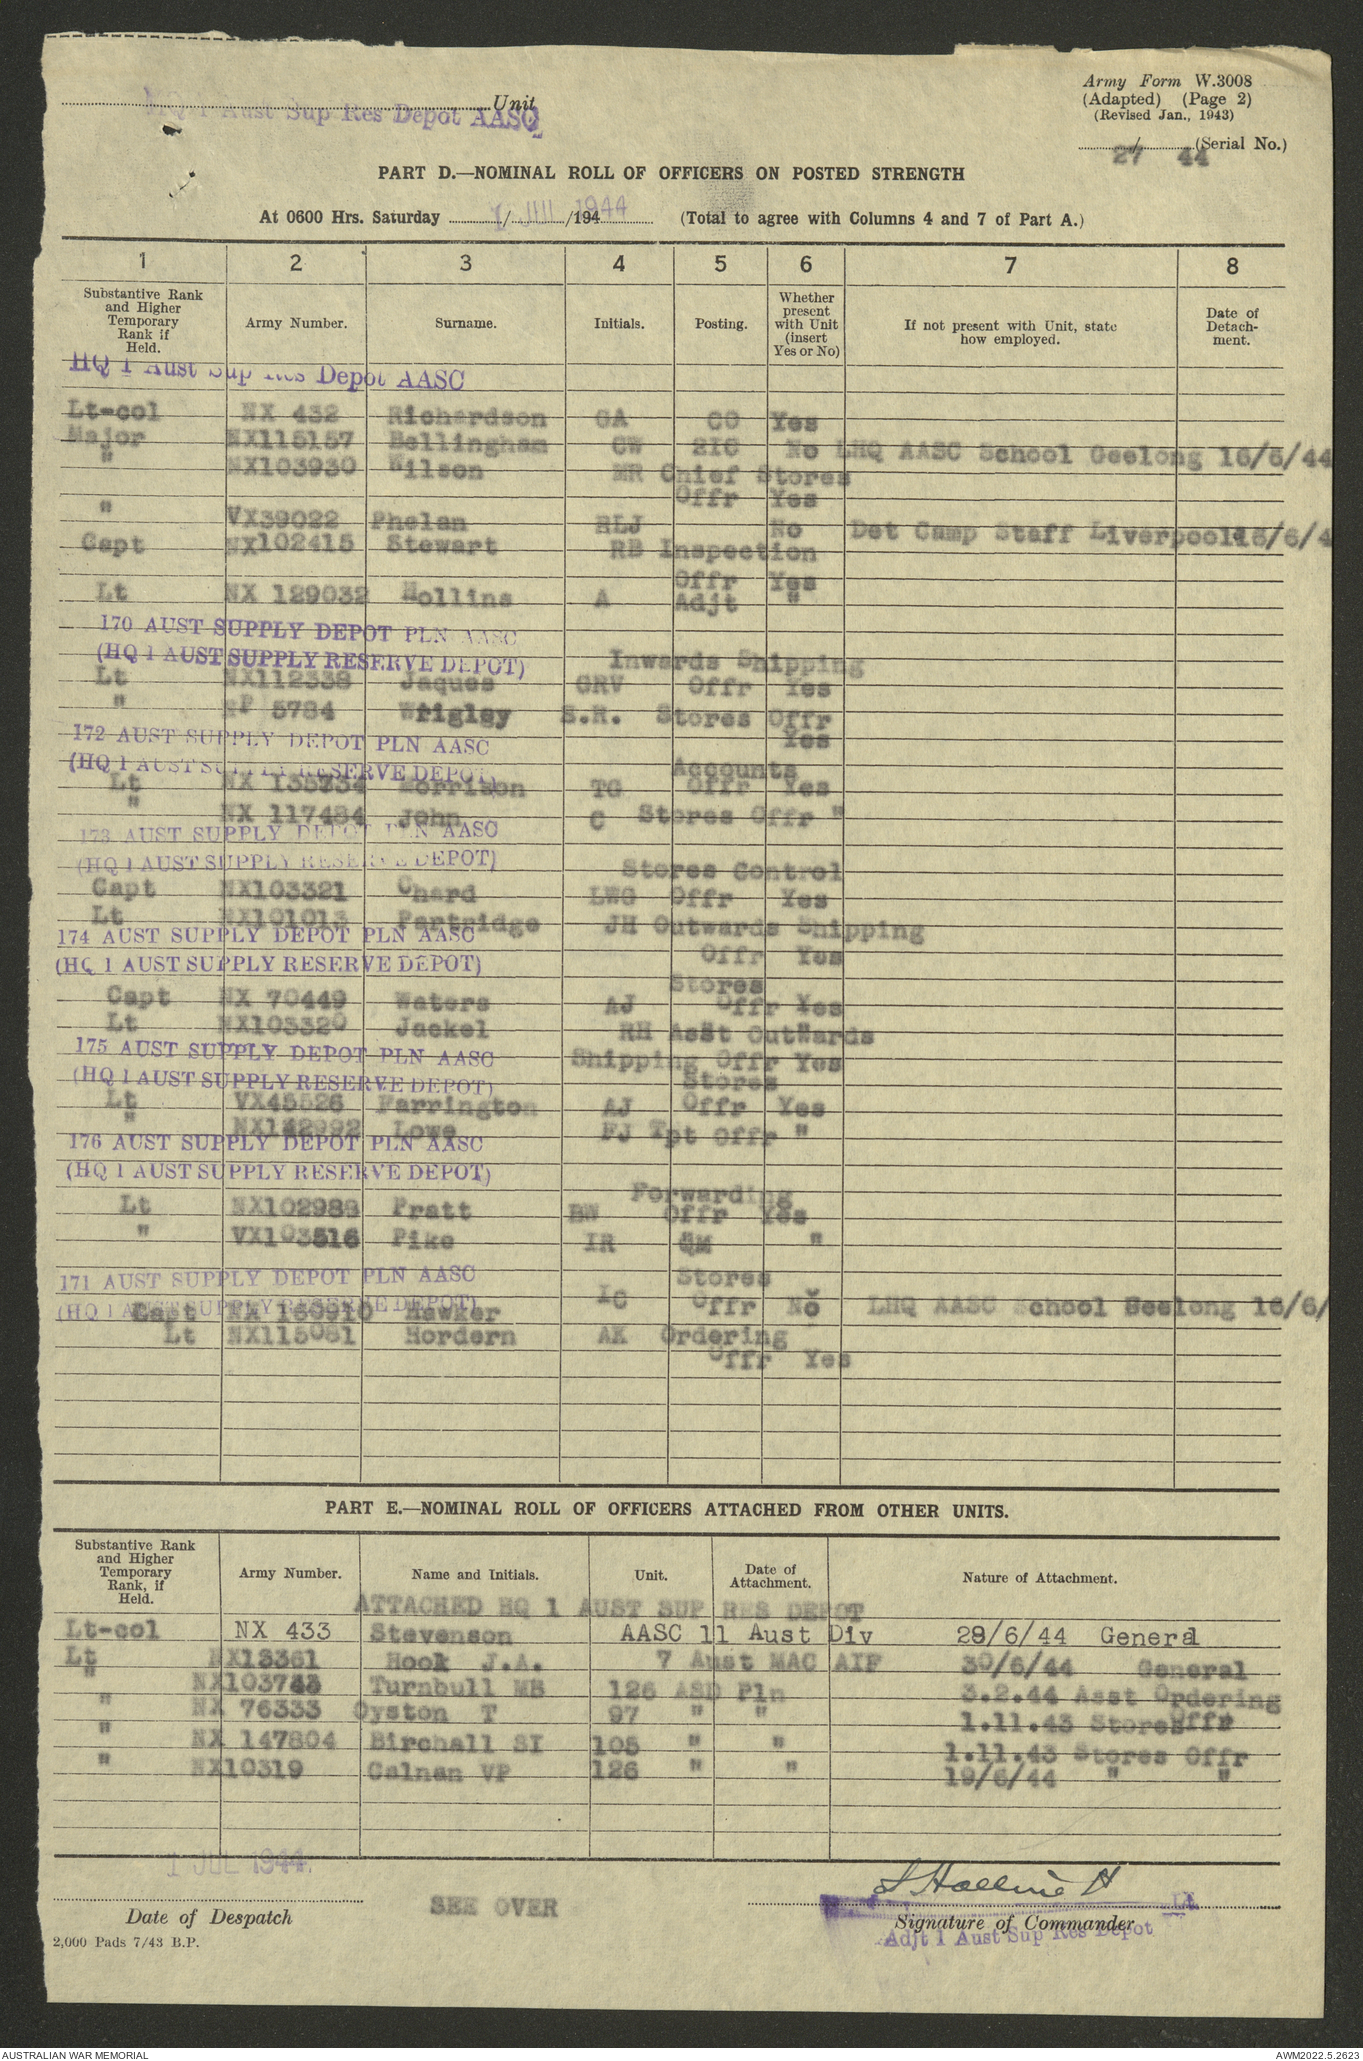 Army Form W.3008
HQ 1 Aust Sup Res Depot AASC Unit
(Adapted) (Page 2)
(Revised Jan., 1943)
27/44 (Serial No.)
PART D.—NOMINAL ROLL OF OFFICERS ON POSTED STRENGTH
At 0600 Hrs. Saturday 1 JUL 1944 /194 (Total to agree with Columns 4 and 7 of Part A.)
1 2 3 4 5 6 7 8
Substantive Rank and Higher Temporary Rank if Held. Army Number. Surname. Initials. Posting. Whether present with Unit (insert Yes or No) If not present with Unit, state how employed. Date of Detach-ment.
HQ 1 Aust Sup Res Depot AASC
Lt-col NX 432 Richardson GA CO Yes
Major NX115157 Bellingham CW 2IC No LHQ AASC School Geelong 16/6/44
" NX103930 Wilson MR Chief Stores
Offr Yes
" VX39022 Phelan RLJ No Det Camp Staff Liverpool 16/6/4
Capt NX102415 Stewart RB Inspection
Offr Yes
Lt NX 129032 Hollins A Adjt "
170 AUST SUPPLY DEPOT PLN AASC
(HQ 1 AUST SUPPLY RESERVE DEPOT) Inwards Shipping
Lt NX112338 Jaques GRV Offr Yes
" 5784 Wrigley S.R. Stores Offr
Yes
172 AUST SUPPLY DEPOT PLN AASC
(HQ 1 AUST SUPPLY RESERVE DEPOT) Accounts
Lt NX 135734 Morrison TG Offr Yes
" NX 117484 John C Stores Offr "
173 AUST SUPPLY DEPOT PLN AASC
(HQ 1 AUST SUPPLY RESERVE DEPOT) Stores Control
Capt NX103321 Chard LWG Offr Yes
Lt NX101013 Partridge JH Outwards Shipping
174 AUST SUPPLY DEPOT PLN AASC
Offr Yes
(HQ 1 AUST SUPPLY RESERVE DEPOT)
Stores
Capt NX 70449 Waters AJ Offr Yes
Lt NX103320 Jackel RH Asst Outwards
175 AUST SUPPLY DEPOT PLN AASC Shipping Offr Yes
(HQ 1 AUST SUPPLY RESERVE DEPOT) Stores
Lt VX45526 Farrington AJ Offr Yes
" NX142992 Lowe FJ Tpt Offr "
176 AUST SUPPLY DEPOT PLN AASC
(HQ 1 AUST SUPPLY RESERVE DEPOT)
Forwarding
Lt NX102988 Pratt BW Offr Yes
" VX103516 Pike IR QM "
171 AUST SUPPLY DEPOT PLN AASC Stores
(HQ 1 AUST SUPPLY RESERVE DEPOT)
Capt 150910 Hawker IC Offr No LHQ AASC School Geelong 16/6/
Lt NX115081 Hordern AK Ordering
Offr Yes
PART E.—NOMINAL ROLL OF OFFICERS ATTACHED FROM OTHER UNITS.
Substantive Rank and Higher Temporary Rank, if Held. Army Number. Name and Initials. Unit. Date of Attachment. Nature of Attachment.
ATTACHED HQ 1 AUST SUP RES DEPOT
Lt-col NX 433 Stevenson AASC 11 Aust Div 29/6/44 General
Lt NX13361 Hook J.A. 7 Aust MAC AIF 30/6/44 General
" Turnbull MB 126 ASD Pln 3.2.44 Asst Ordering
Offr
" NX 76333 Oyston T 97 " " 1.11.43 Stores "
" NX 147804 Birchall SI 105 " " 1.11.43 Stores Offr
" NX10319 Calnan VP 126 " " 19/6/44 " "
1 JUL 1944
Date of Despatch
SEE OVER
Lt
Signature of Commander
Adjt 1 Aust Sup Res Depot
2,000 Pads 7/43 B.P.
AUSTRALIAN WAR MEMORIAL
AWM2022.5.2623